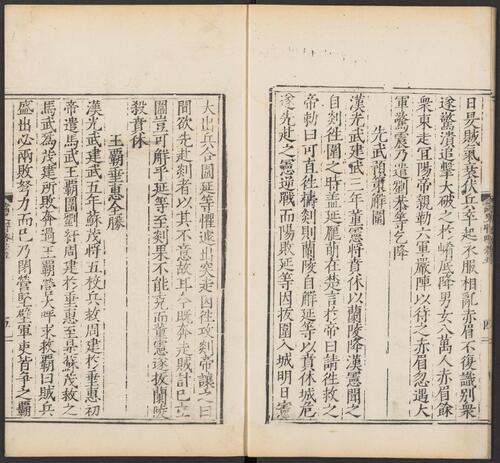 日昃賊氣衰伏兵卒起衣服相亂赤眉不復識別衆
遂驚潰追擊大破之於崤底降男女八萬人赤眉餘
衆東走宜陽帝親勒六軍嚴陣以待之赤眉忽遇大
軍驚震乃遣劉恭等乞降
光武預策解圍
漢光武建武三年董憲將賁休以蘭陵降憲聞之
自郯徃圍之時盖延龐萌在楚言於帝曰請徃救之
帝勑曰可直徃擣郯則蘭陵自解延等以賁休城危
遂先赴之憲逆戰而陽敗延等因拔圍入城明日憲
大出兵合圍延等懼遽出突走因徃攻郯帝讓之曰
間欲先赴郯者以其不意故耳今既奔走賊計已立
圍豈可解乎延等至郯果不能克而董憲遂拔蘭陵
殺賁休
王霸垂惠合勝
漢光武建武五年蘇茂將五校兵救周建於垂惠初
帝遣馬武王霸圍劉紆周建於垂惠至是蘇茂救之
馬武為茂建所敗奔過王霸營大呼求救霸曰賊兵
盛出必兩敗努力而已乃閉營堅壁軍吏皆爭之霸